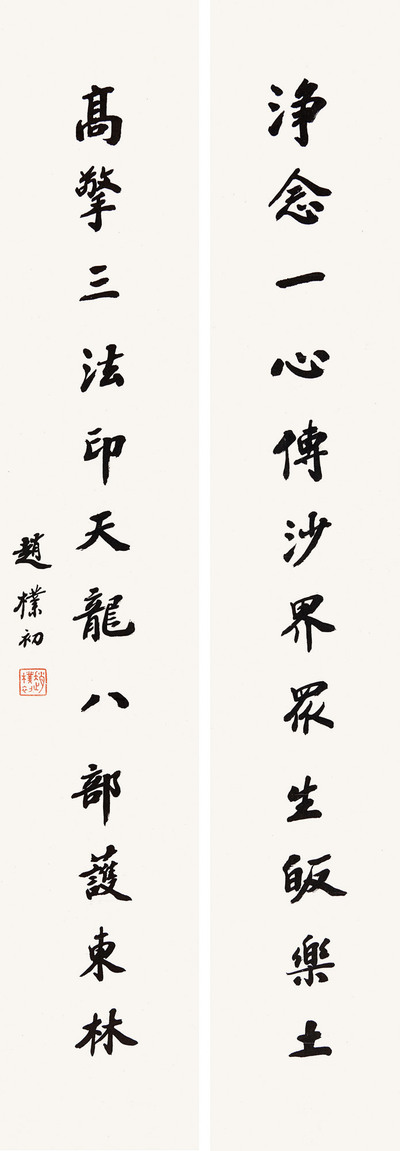 淨念一心傳沙界眾生皈樂土
高擎三法印天龍八部護東林
趙樸初